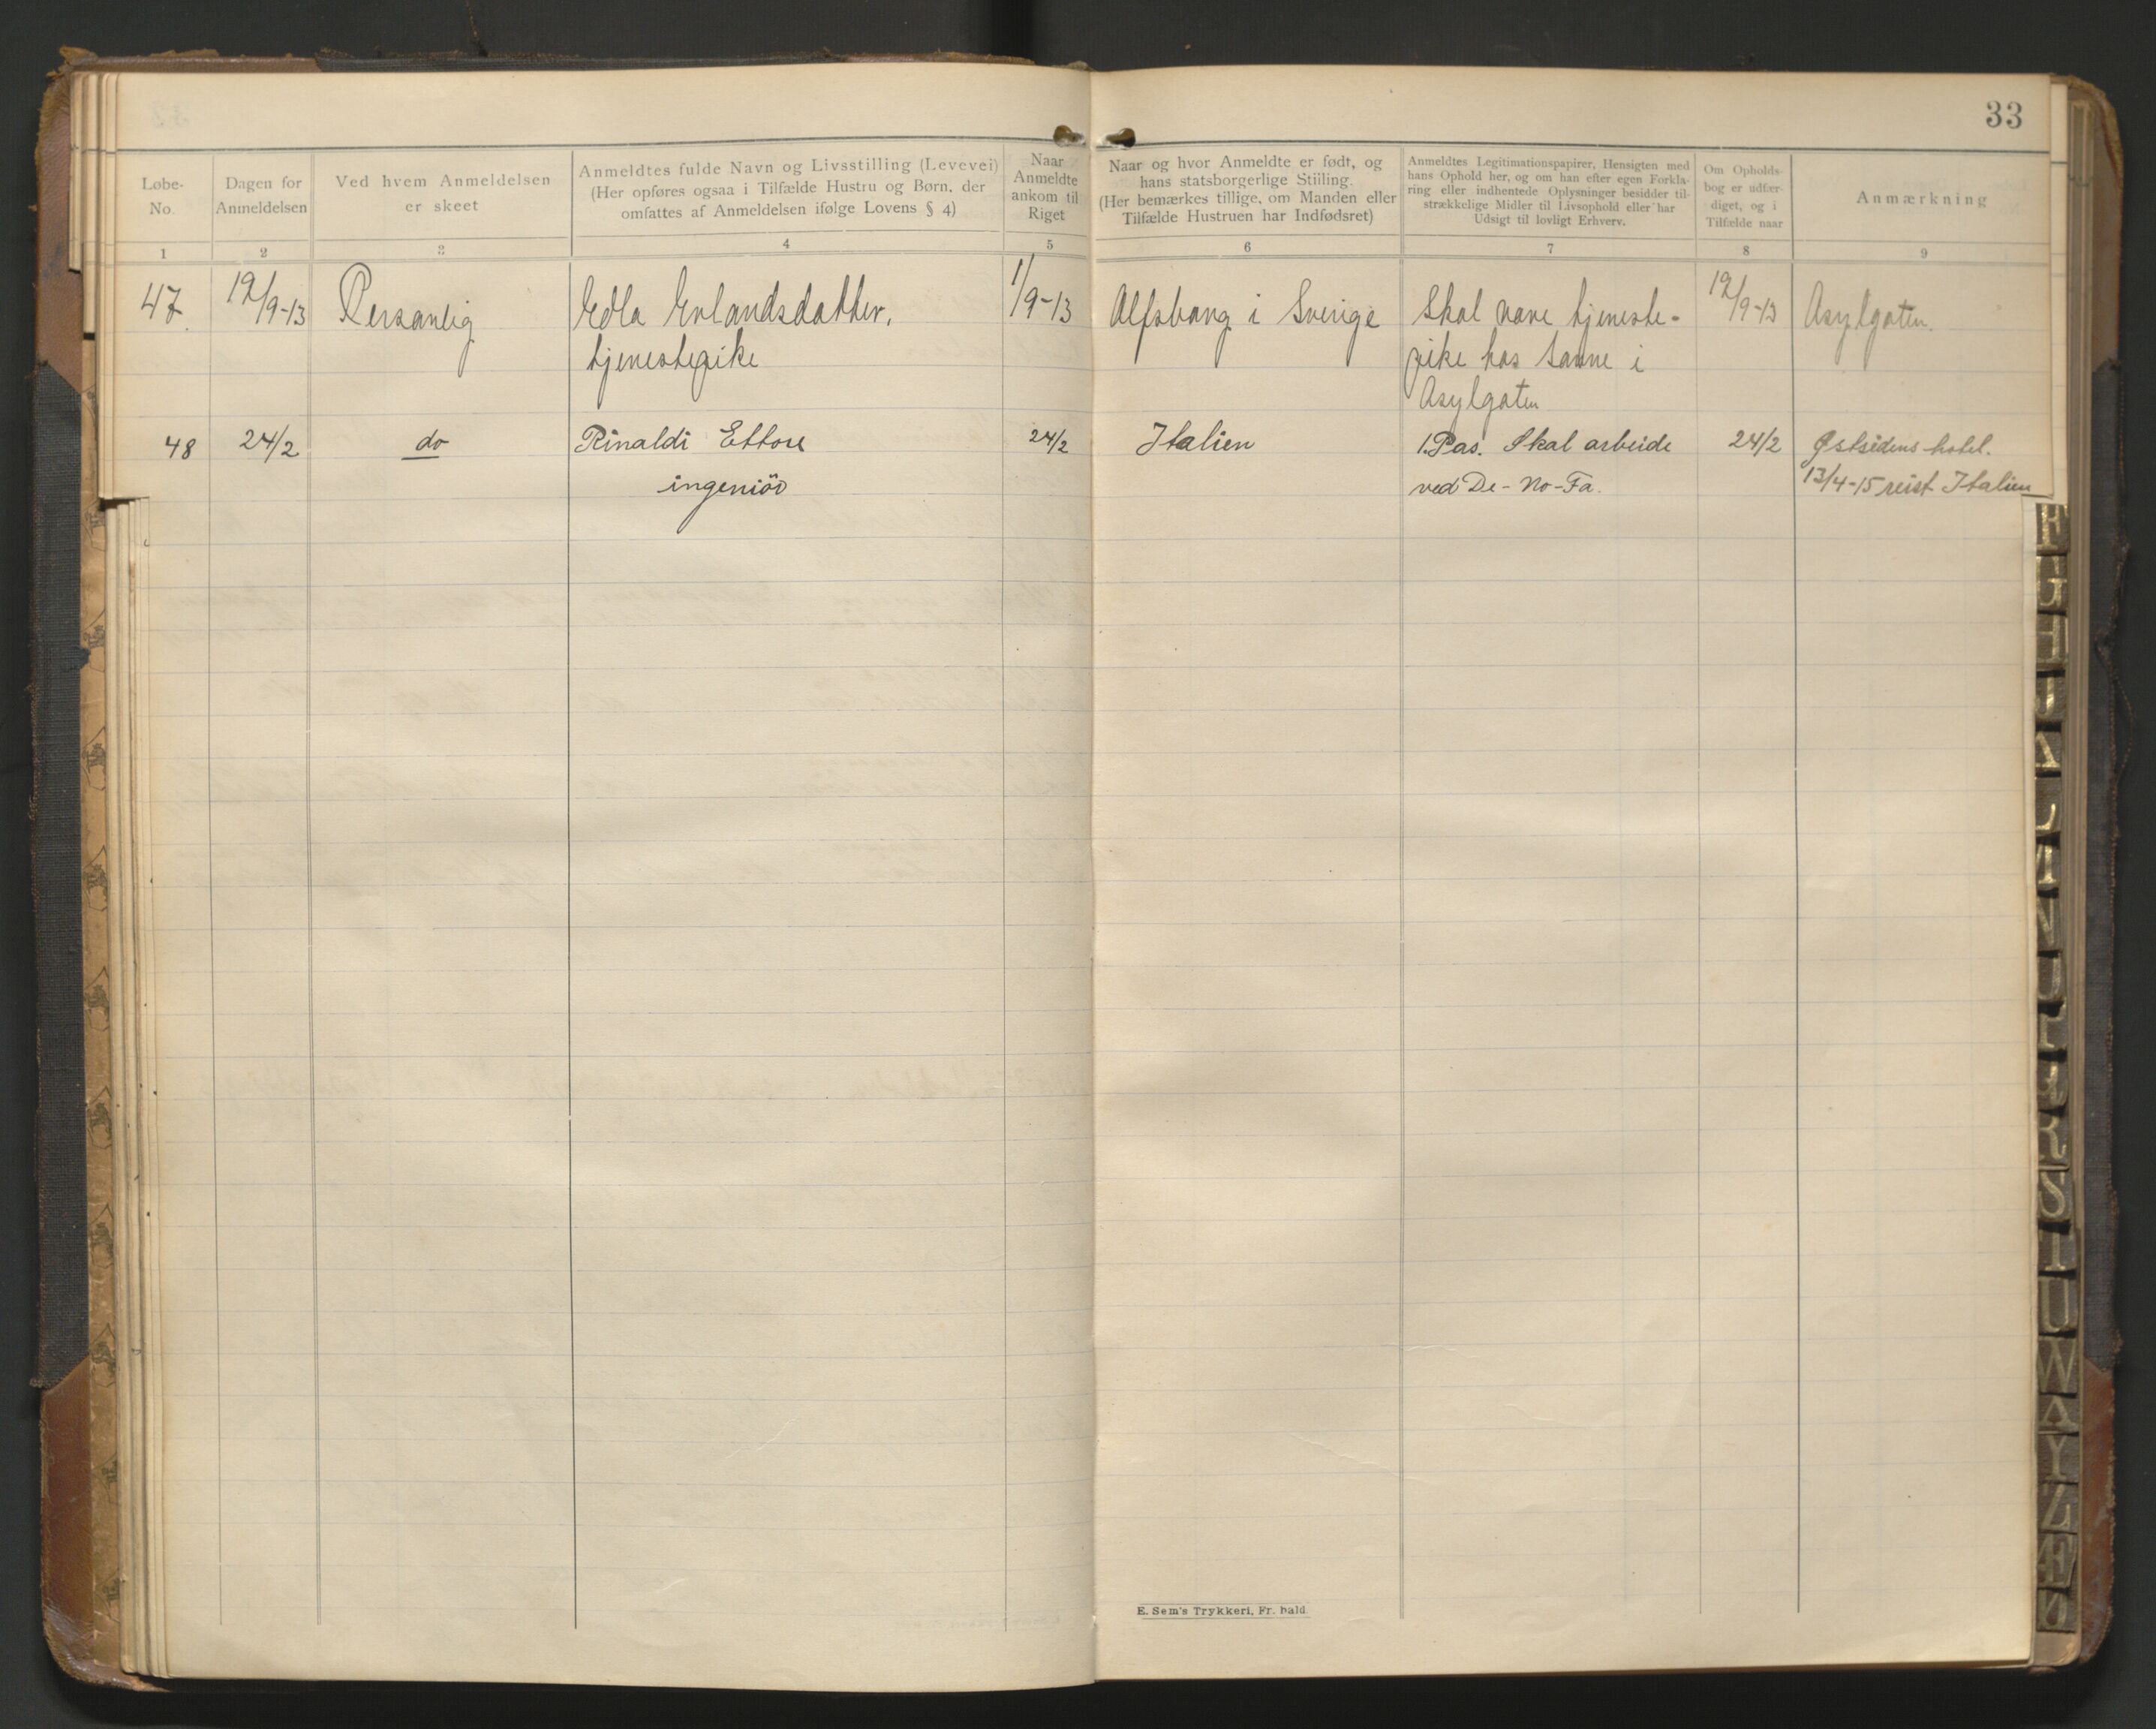 33
Løbe-No.
Dagen for Anmeldelsen
Ved hvem Anmeldelsen er skeet
Anmeldtes fulde Navn og Livsstilling (Levevei)
(Her opføres ogsaa i Tilfælde Hustru og Børn, der
omfattes af Anmeldelsen ifølge Lovens § 4)
Naar Anmeldte ankom til Riget
Naar og hvor Anmeldte er født, og
hans statsborgerlige Stiiling.
(Her bemærkes tillige, om Manden eller
Tilfælde Hustruen har Indfødsret)
Anmeldtes Legitimationspapirer, Hensigten med
hans Ophold her, og om han efter egen Forkla-
ring eller indhentede Oplysninger besidder til-
strækkelige Midler til Livsophold eller har
Udsigt til lovligt Erhverv.
Om Opholds-
bog er udfær-
diget, og i
Tilfælde naar
Anmærkning
1 2 3 4 5 6 7 8 9
47. 19/9-13 Personlig Edla Erlandsdatter, 1/9-13 Alfsborg i Sverige Skal være tjeneste- 19/9-13 Asylgaten.
tjenestepike pike hos Sanne i
Asylgaten
48 24/2 do Rinaldi Ettore 24/2 Italien 1. Pas. Skal arbeide 24/2 Østsidens hotel.
ingeniör ved De-No-Fa. 13/4-15 reist Italien
E. Sem's Trykkeri, Fr. hald.
F
G
H
I
K
L
M
N
O
P
Q
R
S
T
U
W
X
Y
Z
Æ
Ø